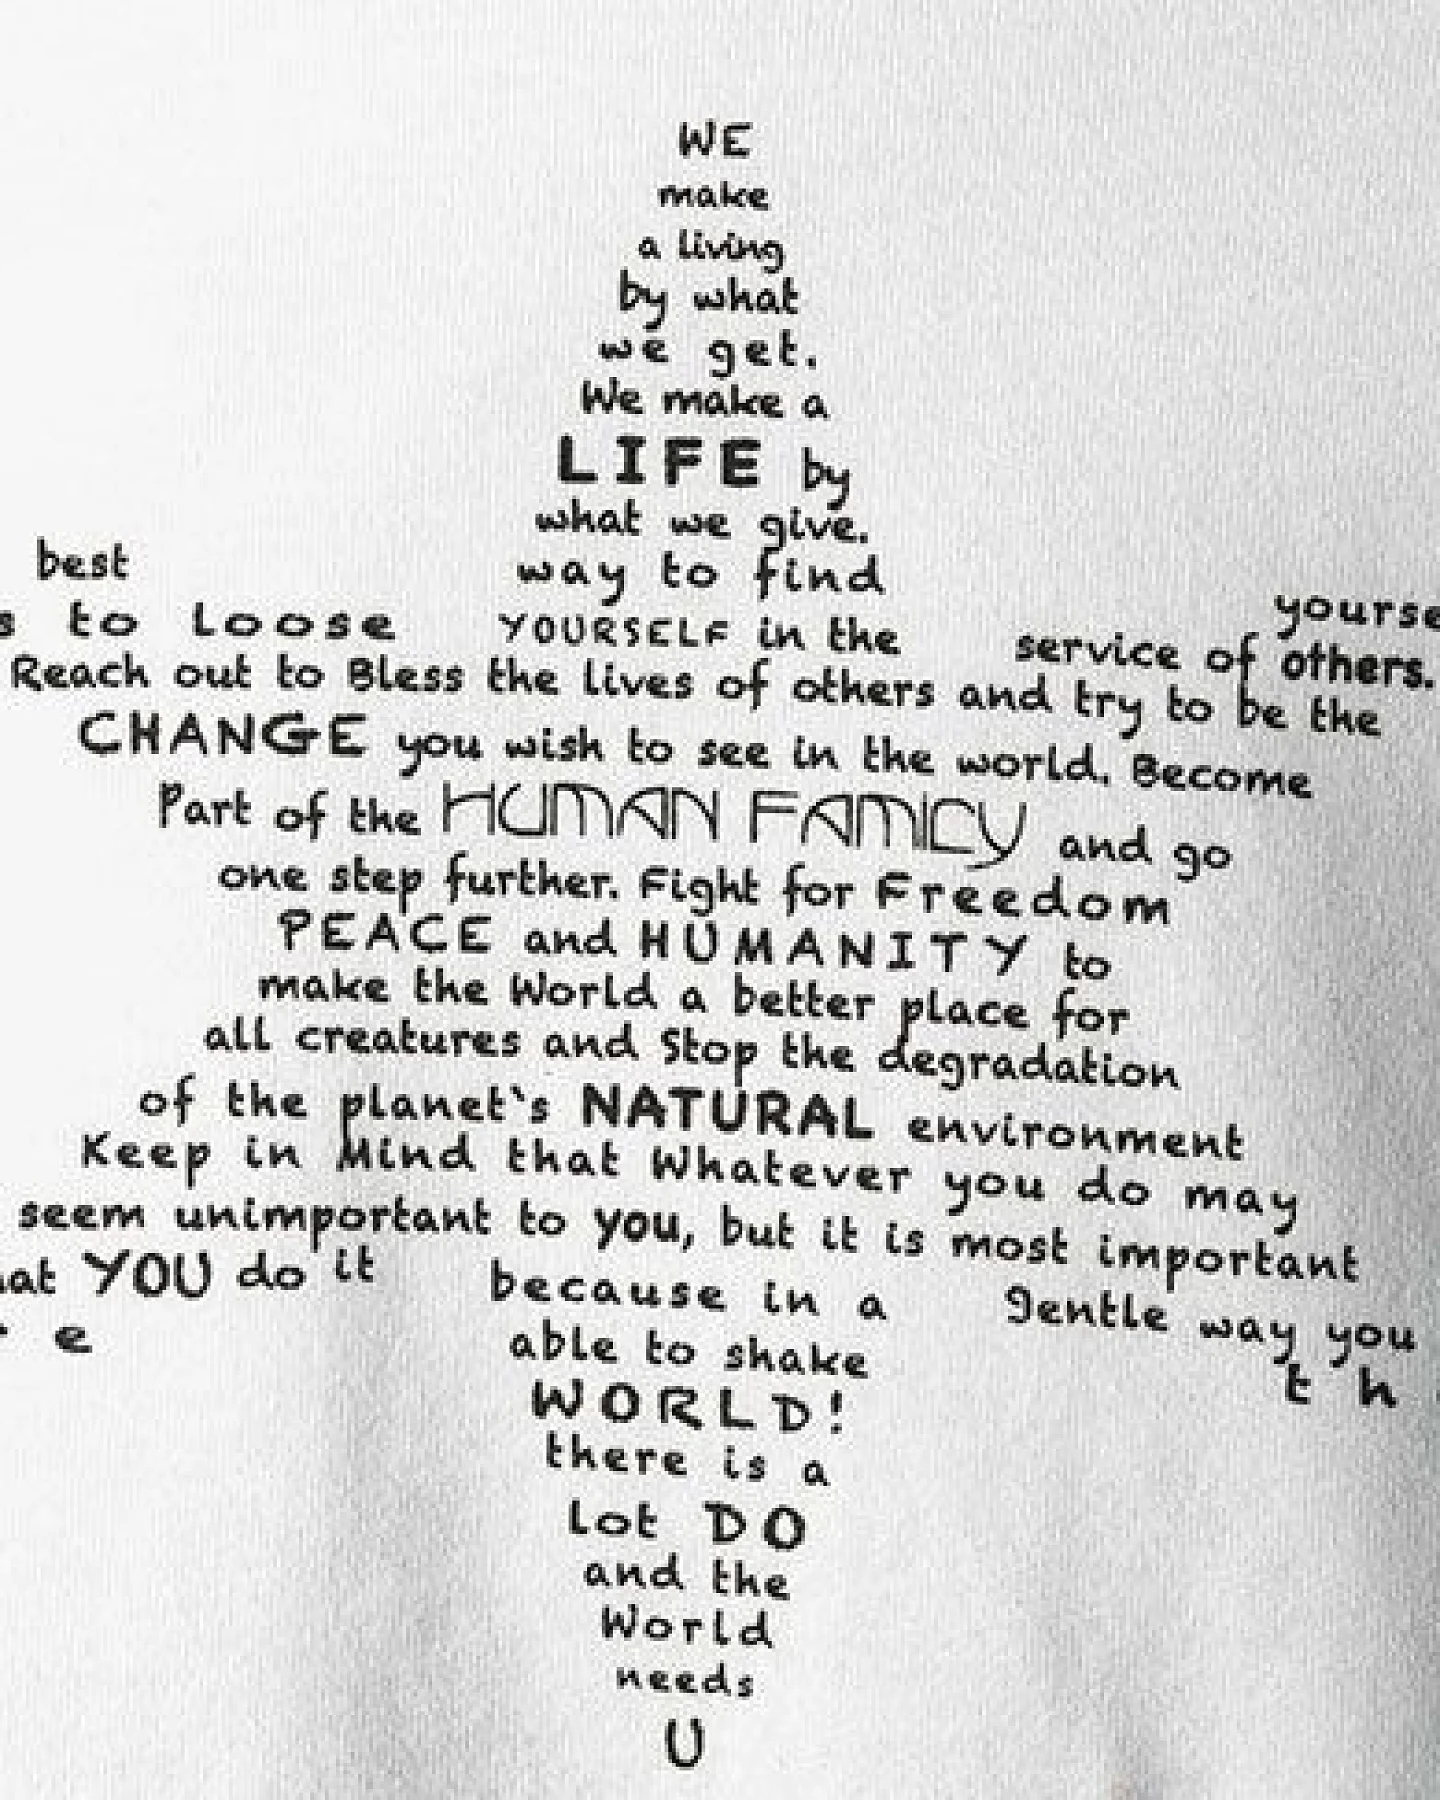 WE
make
a living
by what
we get.
We make a
LIFE by
what we give.
best way to find yourse
s to Loose YOURSELF in the service of others.
Reach out to Bless the lives of others and try to be the
CHANGE you wish to see in the world. Become
Part of the HUMAN FAMILY and go
one step further. Fight for Freedom
PEACE and HUMANITY to
make the World a better place for
all creatures and Stop the degradation
of the planet`s NATURAL environment
Keep in Mind that Whatever you do may
seem unimportant to you, but it is most important
at YOU do it because in a gentle way you
e able to shake t h
WORLD!
there is a
lot DO
and the
World
needs
U